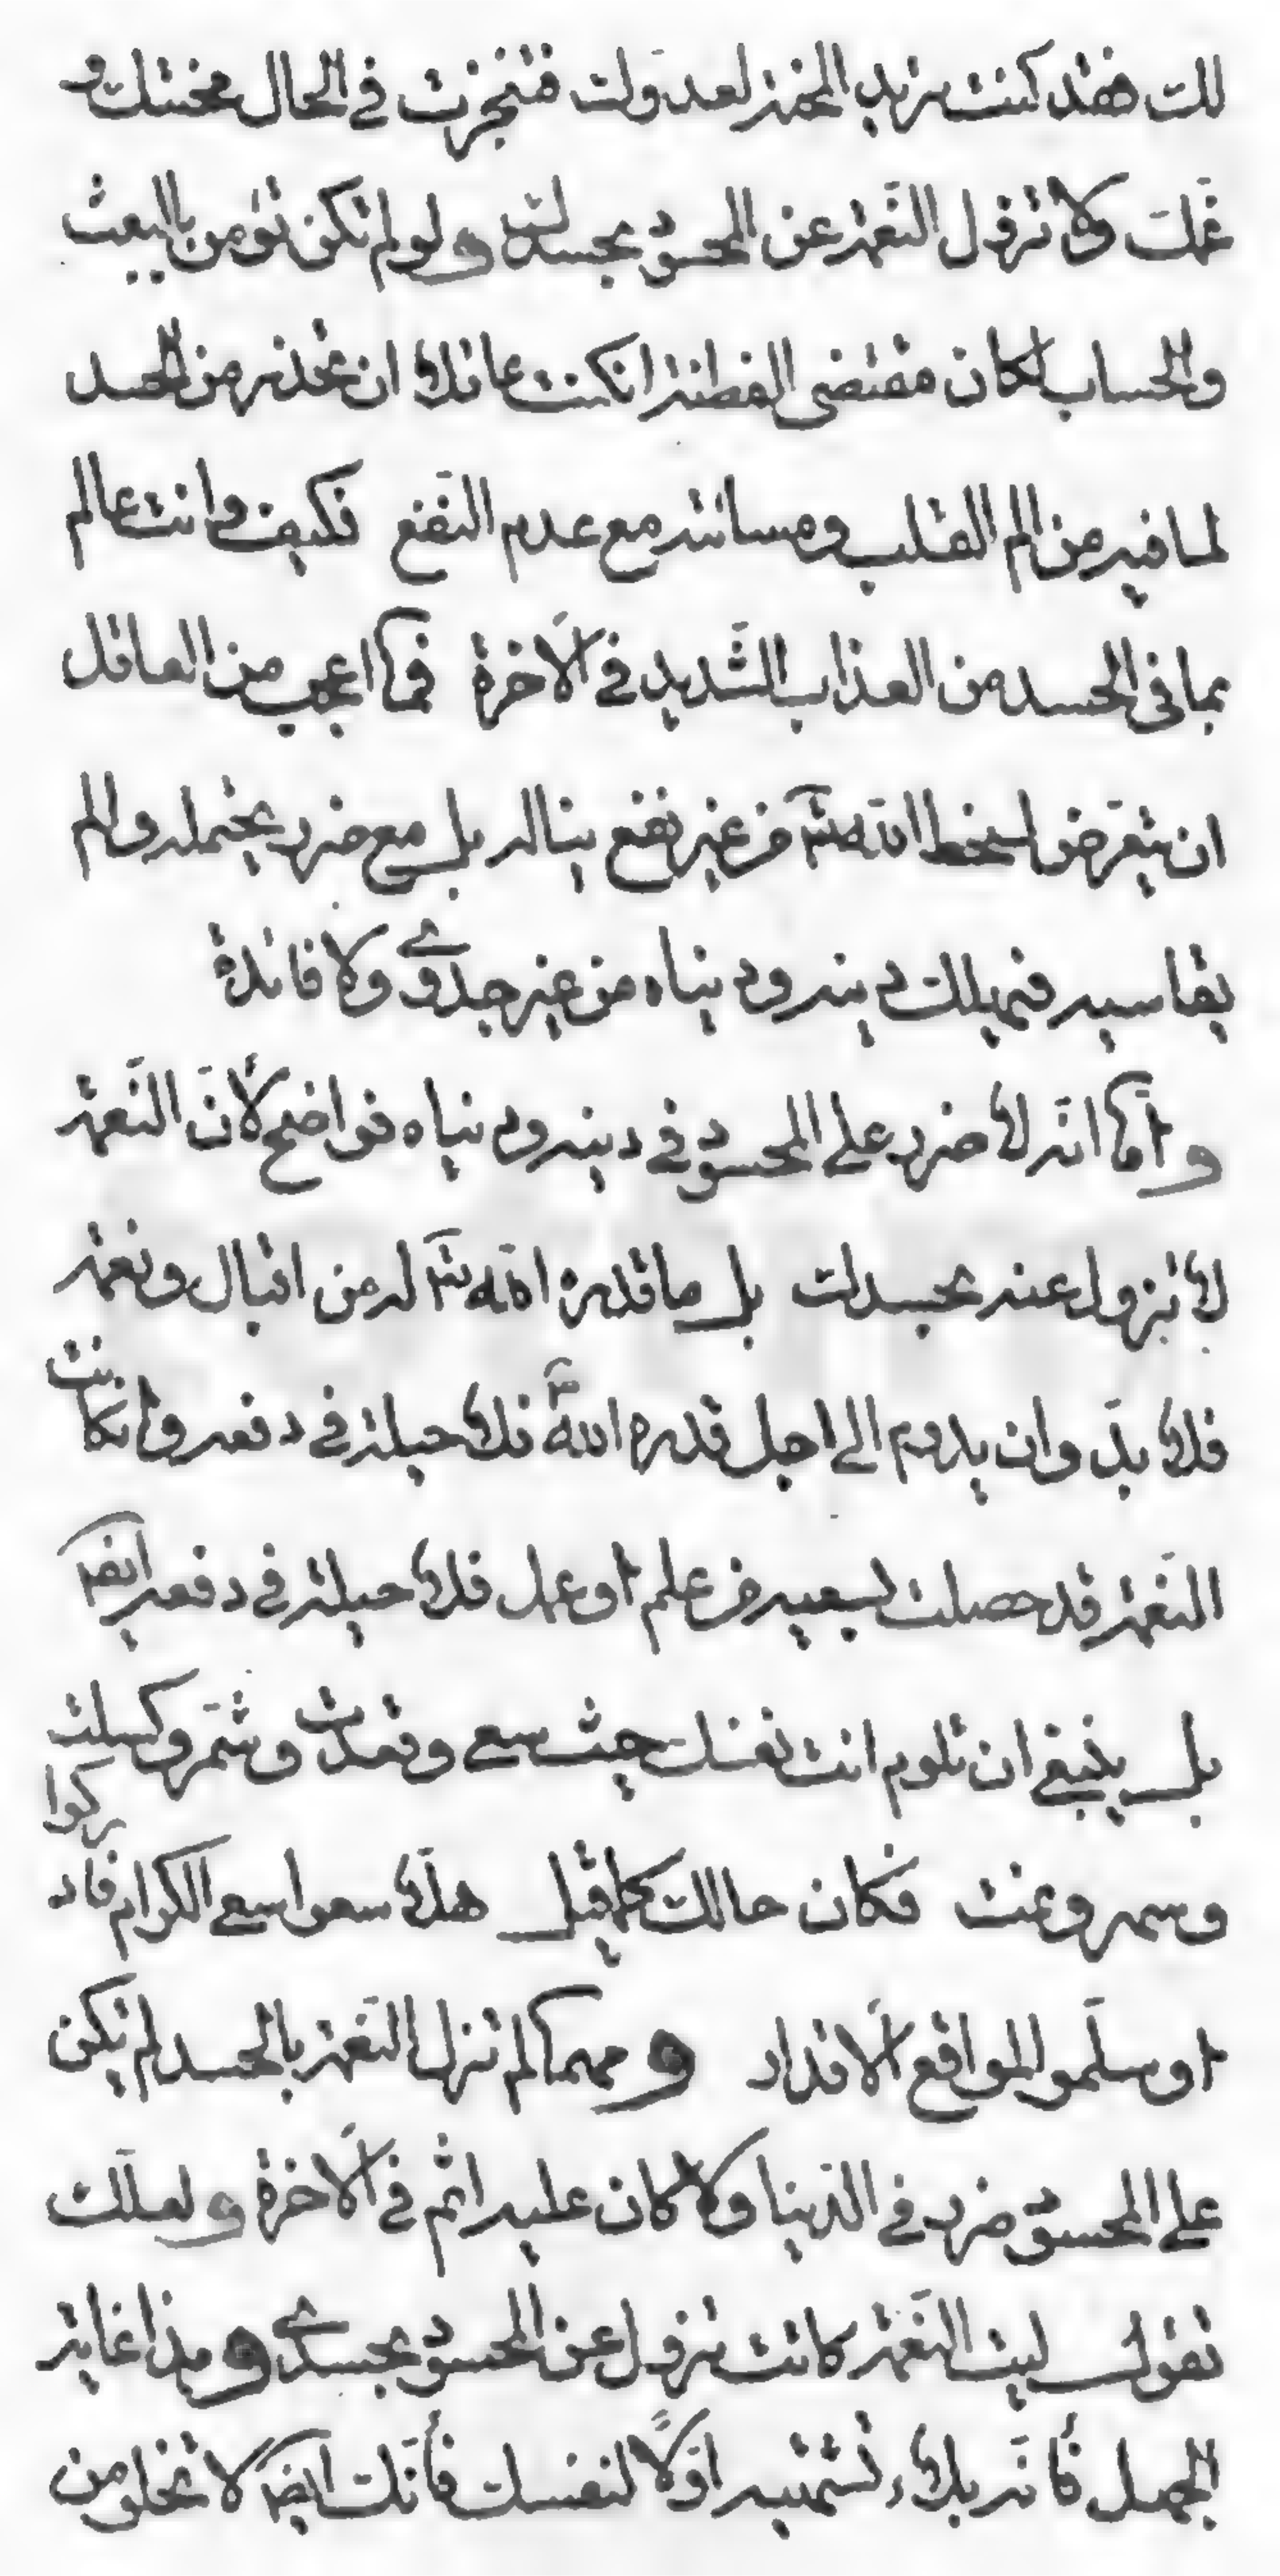 لك فقد كنت تريد المحنة لعدوك فتنجزت في الحال محنتك و
غمك ولا تزول النّعمة عن المحسود بحسدك ولو لم تكن تؤمن بالبعث
والحساب لكان مقتضى الفطنة انكنت عاقلا ان تحذر من الحسد
لما فيه من الم القلب ومسائته مع عدم النّفع فكيف وانت عالم
بما في الحسد من العذاب الشّديد في الآخرة فما اعجب من العاقل
ان يتعرّض لسخط الله تعّ من غير نفع يناله بل مع ضرر يحتمله والم
يقاسيه فيهلك دينه ودنياه من غير جدوى ولا فائدة
وامّا انّه لا ضرر على المحسود في دينه ودنياه فواضح لأنّ النّعمة
لا تزول عنه بحسدك بل ما قدره الله تعّ له من اقبال ونعمة
فلا بدّ وان يدوم الى اجل قدره الله تعّ فلا حيلة في دفعه وانكانت
النّعمة قد حصلت بسعيه من علم او عمل فلا حيلة في دفعه ايضا
بل ينبغي ان تلوم انت نفسك حيث سعى وقعدت وشمّر وكسلت
وسهر ونمت فكان حالك كما قيل هلّا سعوا سعي الكرام فادركوا
او سلّموا لمواقع الاقدار ومهما لم تزل النّعمة بالحسد لم يكن
على المحسود ضرر في الدّنيا ولا كان عليه اثم في الآخرة ولعلّك
تقول ليت النّعمة كانت تزول عن المحسود بحسدي وهذا غاية
الجهل فأنّه بلاء تشتهيه اوّلا لنفسك فأنّك ايضا لا تخلو من